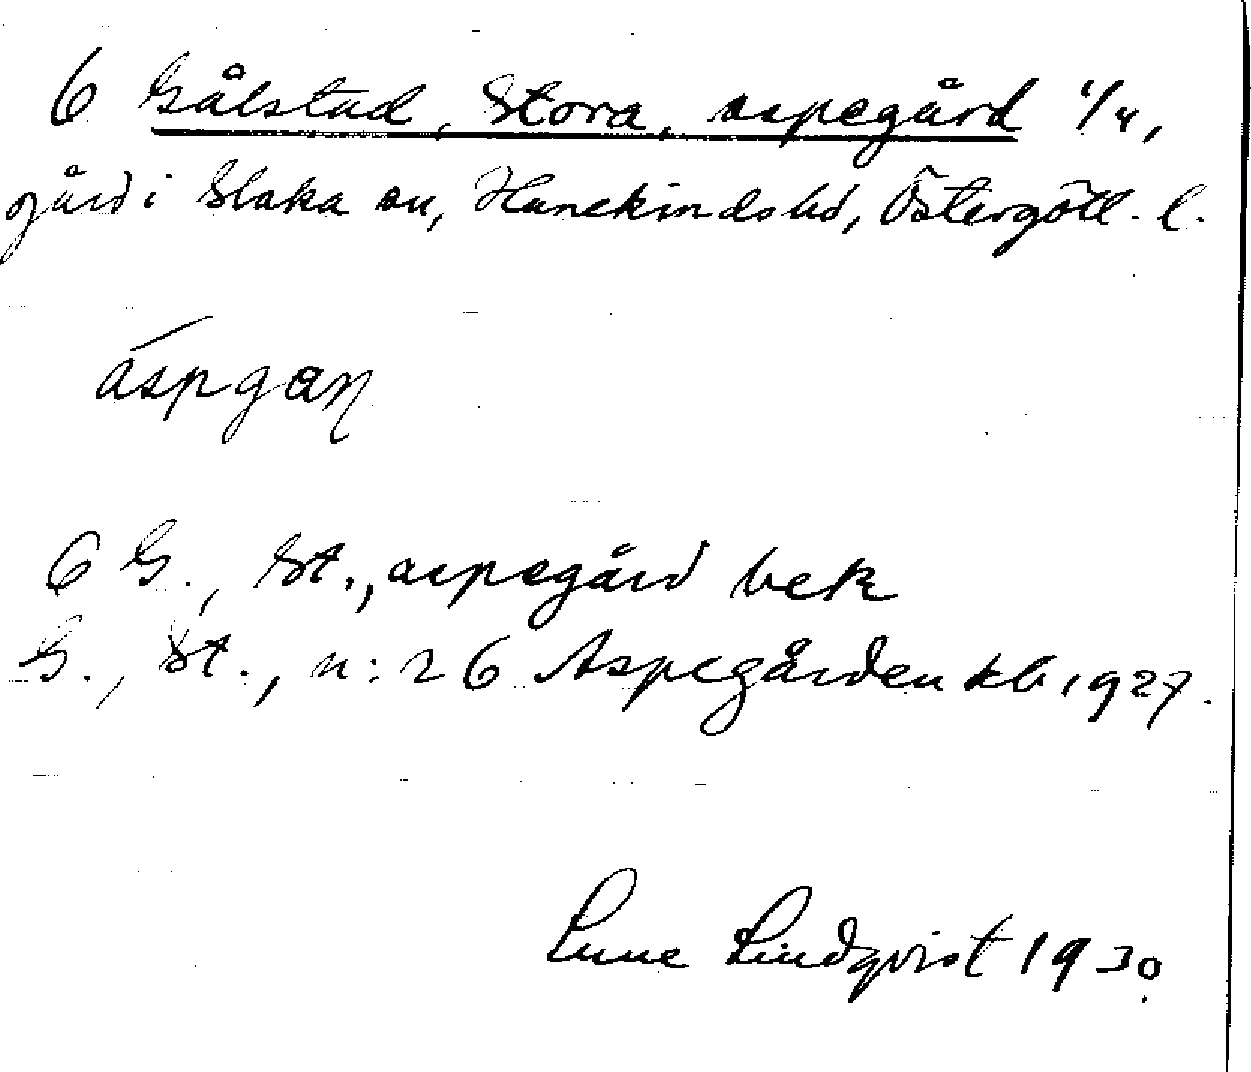 6 Gålstad, Stora, aspegård 1/4,
gård i Slaka sn, Hanekinds hd, Östergötl. l.
áspgaɳ
6 G., St., aspegård bek
G., St., n:r 6 Aspegården kb 1927.
Sune Lindqvist 1930.